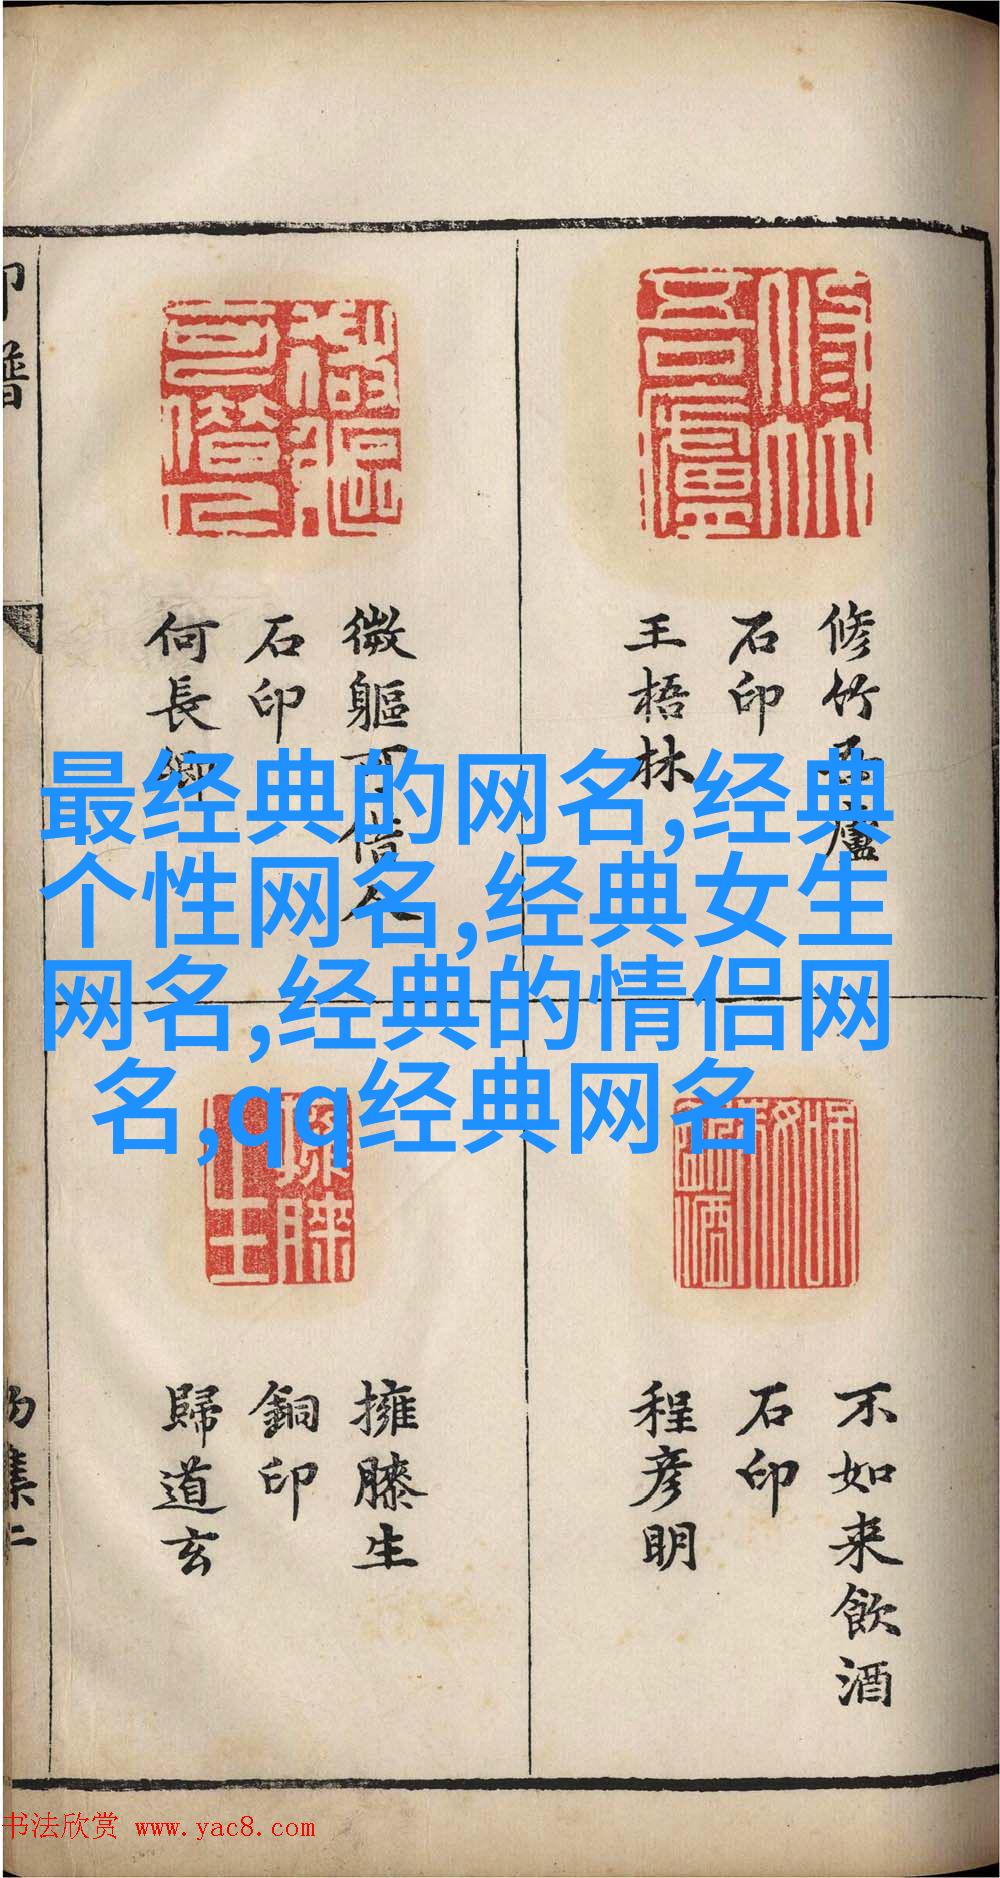 最经典的网名,经典
个性网名,经典女生
网名,经典的情侣网
名,qq经典网名
修竹吾廬
石印
王梧林
微軀可借人
石印
何長卿
不如来飲酒
石印
程彦明
擁膝生
銅印
歸道玄
印譜
集二
修竹吾廬
擁膝生
书法欣赏 www.yac8.com